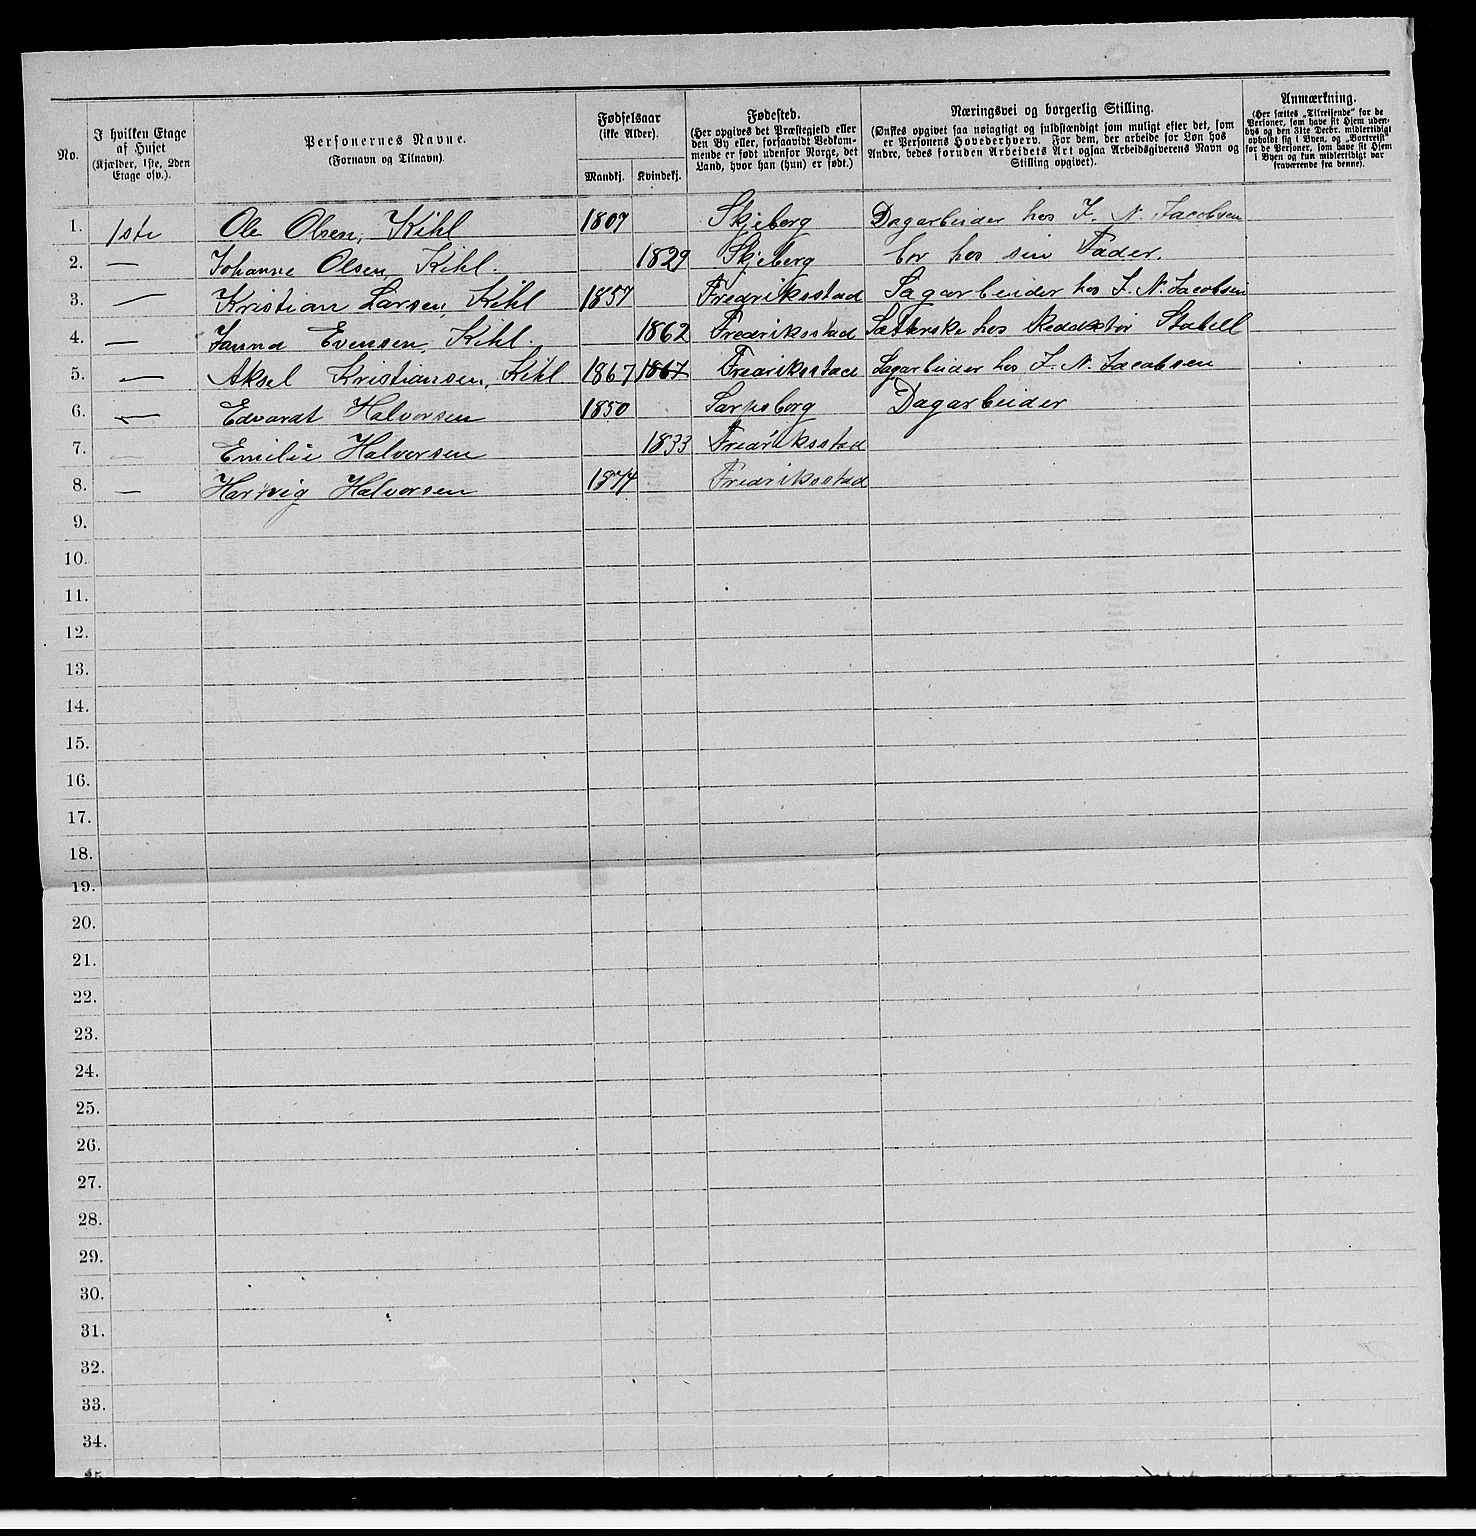 No.
I hvilken Etage
af Huset
(Kjælder, 1ste, 2den
Etage osv.).
Personernes Navne.
(Fornavn og Tilnavn).
Fødselsaar
(ikke Alder).
Mandkj. Kvindekj.
Fødested.
(Her opgives det Præstegjeld eller
den By eller, forsaavidt Vedkom-
mende er født udenfor Norge, det
Land, hvor han (hun) er født.)
Næringsvei og borgerlig Stilling.
(Ønskes opgivet saa nøiagtigt og fuldstændigt som muligt efter det, som
er Personens Hovederhverv. For dem, der arbeide for Løn hos
Andre, bedes foruden Arbeidets Art ogsaa Arbeidsgiverens Navn og
Stilling opgivet).
Anmærkning.
(Her sættes „Tilreisende" for de
Personer, som have sit Hjem uden-
bys og den 31te Decbr. midlertidigt
opholdt sig i Byen, og „Bortreist"
for de Personer, som have sit Hjem
i Byen og kun midlertidigt var
fraværende fra denne).
1. 1ste Ole Olsen, Kihl 1807 Skjeberg Dagarbeider hos J. N. Jacobsen
2. — Johanne Olsen, Kihl. 1829 Skjeberg bor hos sin Fader.
3. — Kristian Larsen, Kihl 1857 Fredriksstad Sagarbeider hos J. N. Jacobsen
4. — Janna Evensen, Kihl. 1862 Fredriksstad Sætterske hos Redaktør Stabell
5. — Aksel Kristiansen, Kihl 1867 1867 Fredriksstad Sagarbeider hos J. N. Jacobsen
6. — Edvardt Halvorsen 1850 Sarpsborg Dagarbeider
7. Emilie Halvorsen 1833 Fredriksstad
8. — Hartvig Halvorsen 1874 Fredriksstad
9.
10.
11.
12.
13.
14.
15.
16.
17.
18.
19.
20.
21.
22.
23.
24.
25.
26.
27.
28.
29.
30.
31.
32.
33.
34.
35